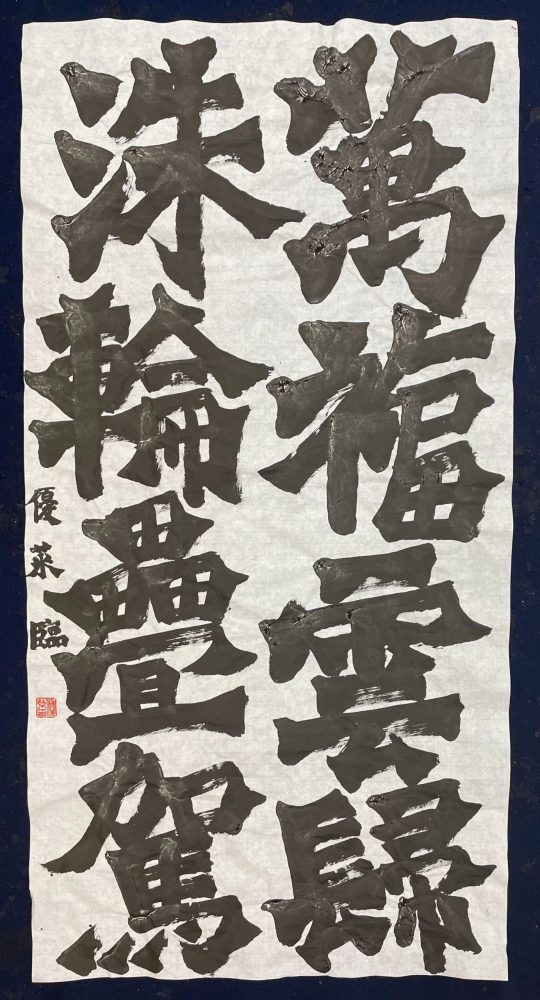 萬福雲歸
洙輪疊駕
優菜臨